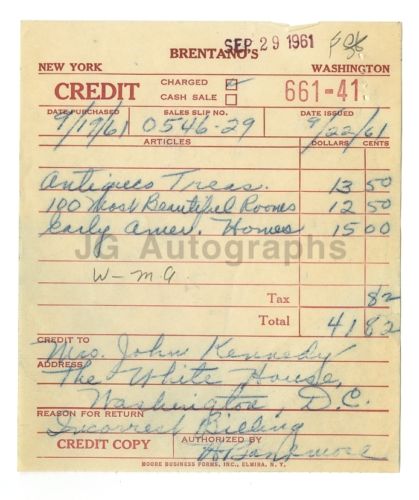 SEP 29 1961
BRENTANO'S
NEW YORK WASHINGTON
CREDIT CHARGED
CASH SALE
661-41
DATE PURCHASED SALES SLIP NO. DATE ISSUED
9/19/61 0546-29 9/22/61
ARTICLES DOLLARS CENTS
Antiques Treas. 13 50
100 Most Beautiful Rooms 12 50
Early Amer. Homes 15 00
JG Autographs
W-M.A
Tax 82
Total 41 82
CREDIT TO Mrs. John Kennedy
ADDRESS The White House,
Washington, D.C.
REASON FOR RETURN
Incorrect Billing
CREDIT COPY AUTHORIZED BY
MOORE BUSINESS FORMS, INC., ELMIRA, N. Y.